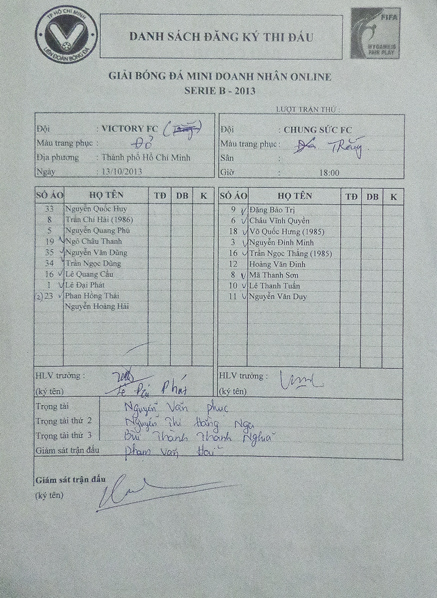 TP HỒ CHÍ MINH
LIÊN ĐOÀN BÓNG ĐÁ
DANH SÁCH ĐĂNG KÝ THI ĐẤU
FIFA
MY GAME IS
FAIR PLAY
GIẢI BÓNG ĐÁ MINI DOANH NHÂN ONLINE
SERIE B - 2013
LƯỢT TRẬN THỨ :
Đội : VICTORY FC
Màu trang phục : Đỏ
Địa phương : Thành phố Hồ Chí Minh
Ngày : 13/10/2013
Đội : CHUNG SỨC FC
Màu trang phục : Trắng
Sân :
Giờ : 18:00
SỐ ÁO HỌ TÊN TĐ DB K
33 Nguyễn Quốc Huy
8 Trần Chí Hải (1986)
5 Nguyễn Quang Phú
19 Ngô Châu Thanh
35 Nguyễn Văn Dũng
34 Trần Ngọc Dũng
16 Lê Quang Cẩu
1 Lê Đại Phát
23 Phan Hồng Thái
Nguyễn Hoàng Hải
SỐ ÁO HỌ TÊN TĐ DB K
9 Đặng Bảo Trị
6 Châu Vĩnh Quyền
18 Võ Quốc Hưng (1985)
3 Nguyễn Đình Minh
16 Trần Ngọc Thăng (1985)
12 Hoàng Văn Định
8 Mã Thanh Sơn
10 Lê Thanh Tuấn
11 Nguyễn Văn Duy
HLV trưởng :
(ký tên) Lê Đại Phát
HLV trưởng :
(ký tên)
Trọng tài Nguyễn Văn Phúc
Trọng tài thứ 2 Nguyễn Thị Hằng Nga
Trọng tài thứ 3 Bùi Thành Thành Nghĩa
Giám sát trận đấu Phạm Văn
Giám sát trận đấu
(ký tên)